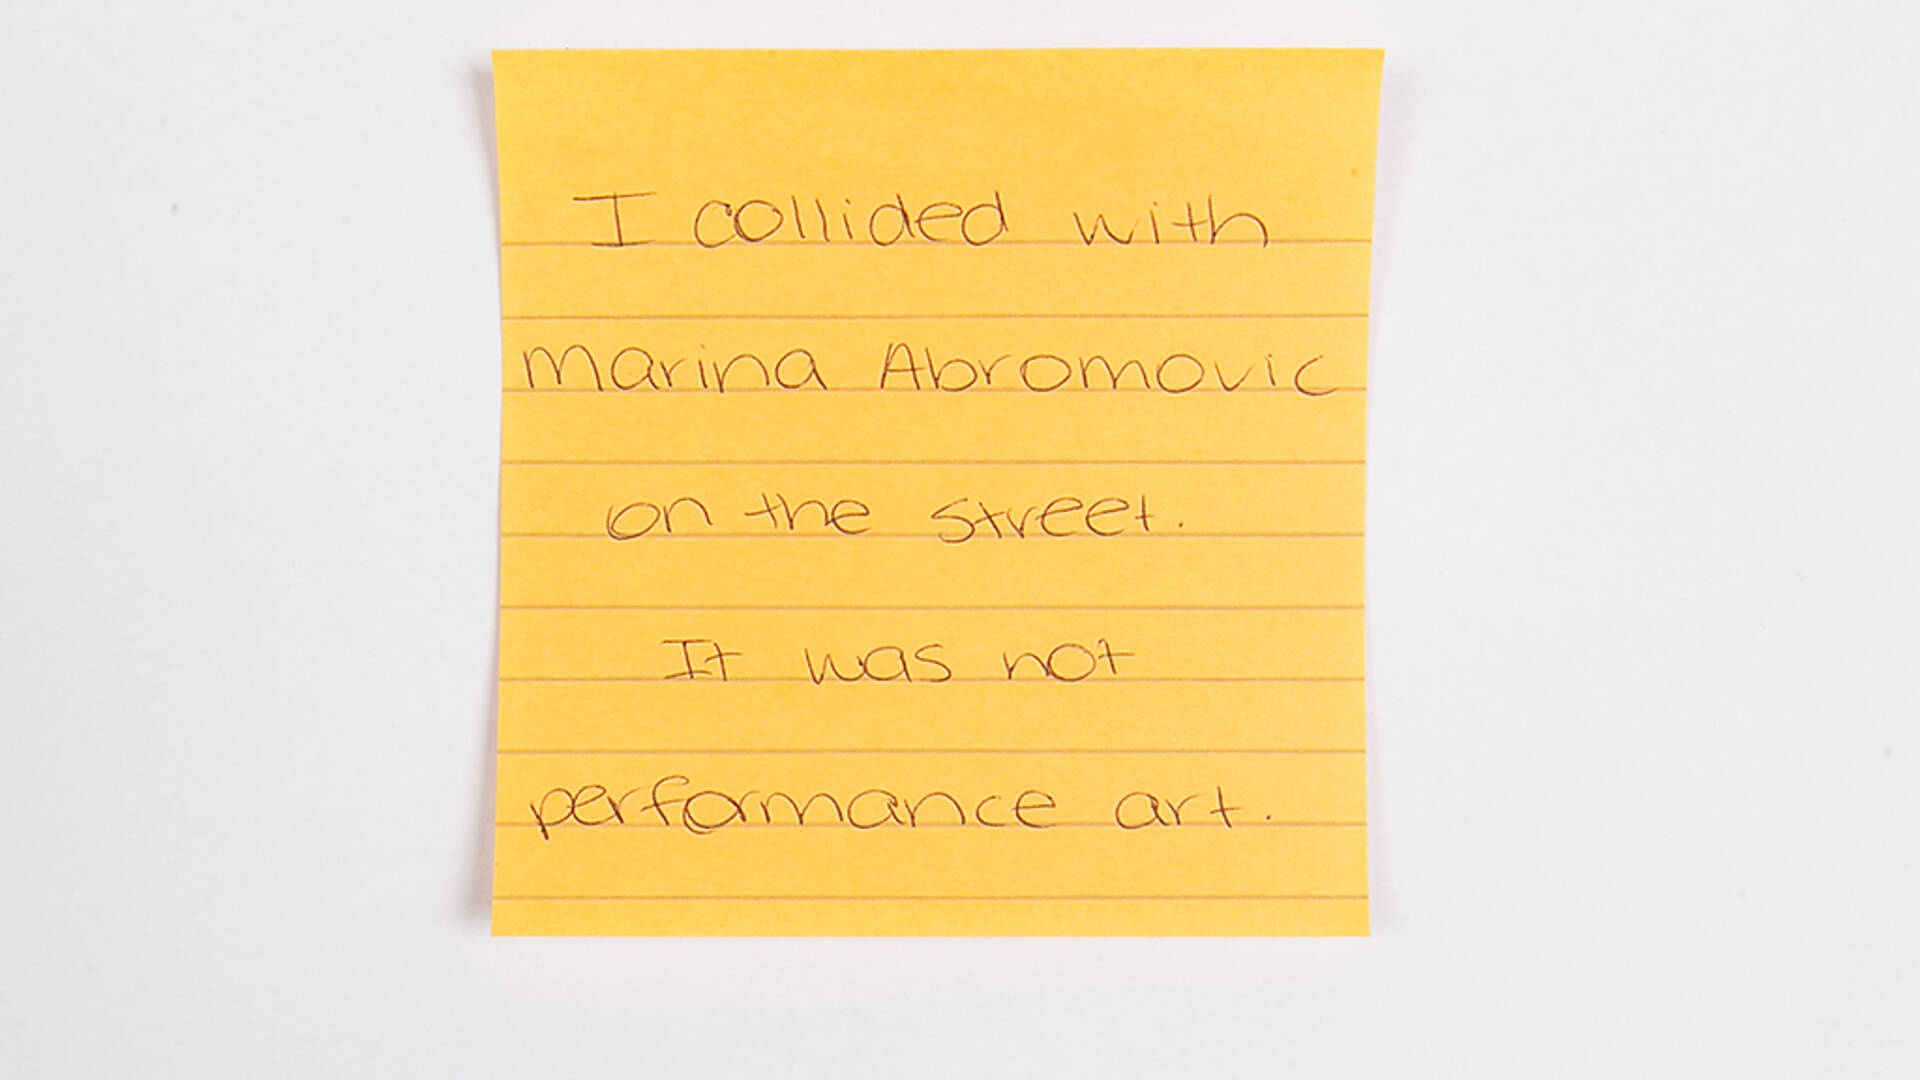 I collided with
Marina Abromovic
on the street.
It was not
performance art.